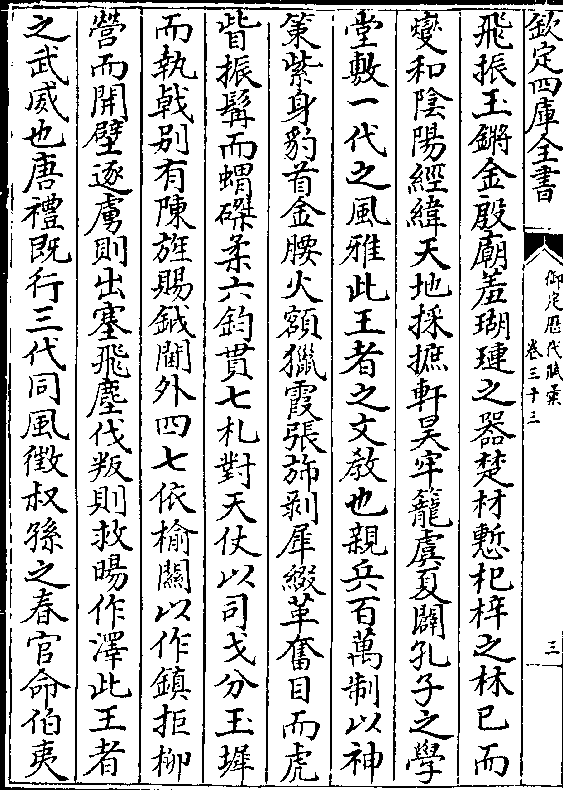 欽定四庫全書
御定歴代賦彙
卷三十三
三
飛振玉鏘金殷廟羞瑚璉之器楚材慙杞梓之林已而
燮和陰陽經緯天地採摭軒昊牢籠虞夏闢孔子之學
堂敷一代之風雅此王者之文教也親兵百萬制以神
策紫身豹首金腰火額獵霞張斾剥犀綴革奮目而虎
眥振髯而蝟磔柔六鈞貫七札對天仗以司戈分玉墀
而執㦸别有陳旌賜鉞閫外四七依榆關以作鎮拒柳
營而開壁逐虜則出塞飛塵伐叛則救暍作澤此王者
之武威也唐禮既行三代同風徵叔孫之春官命伯夷